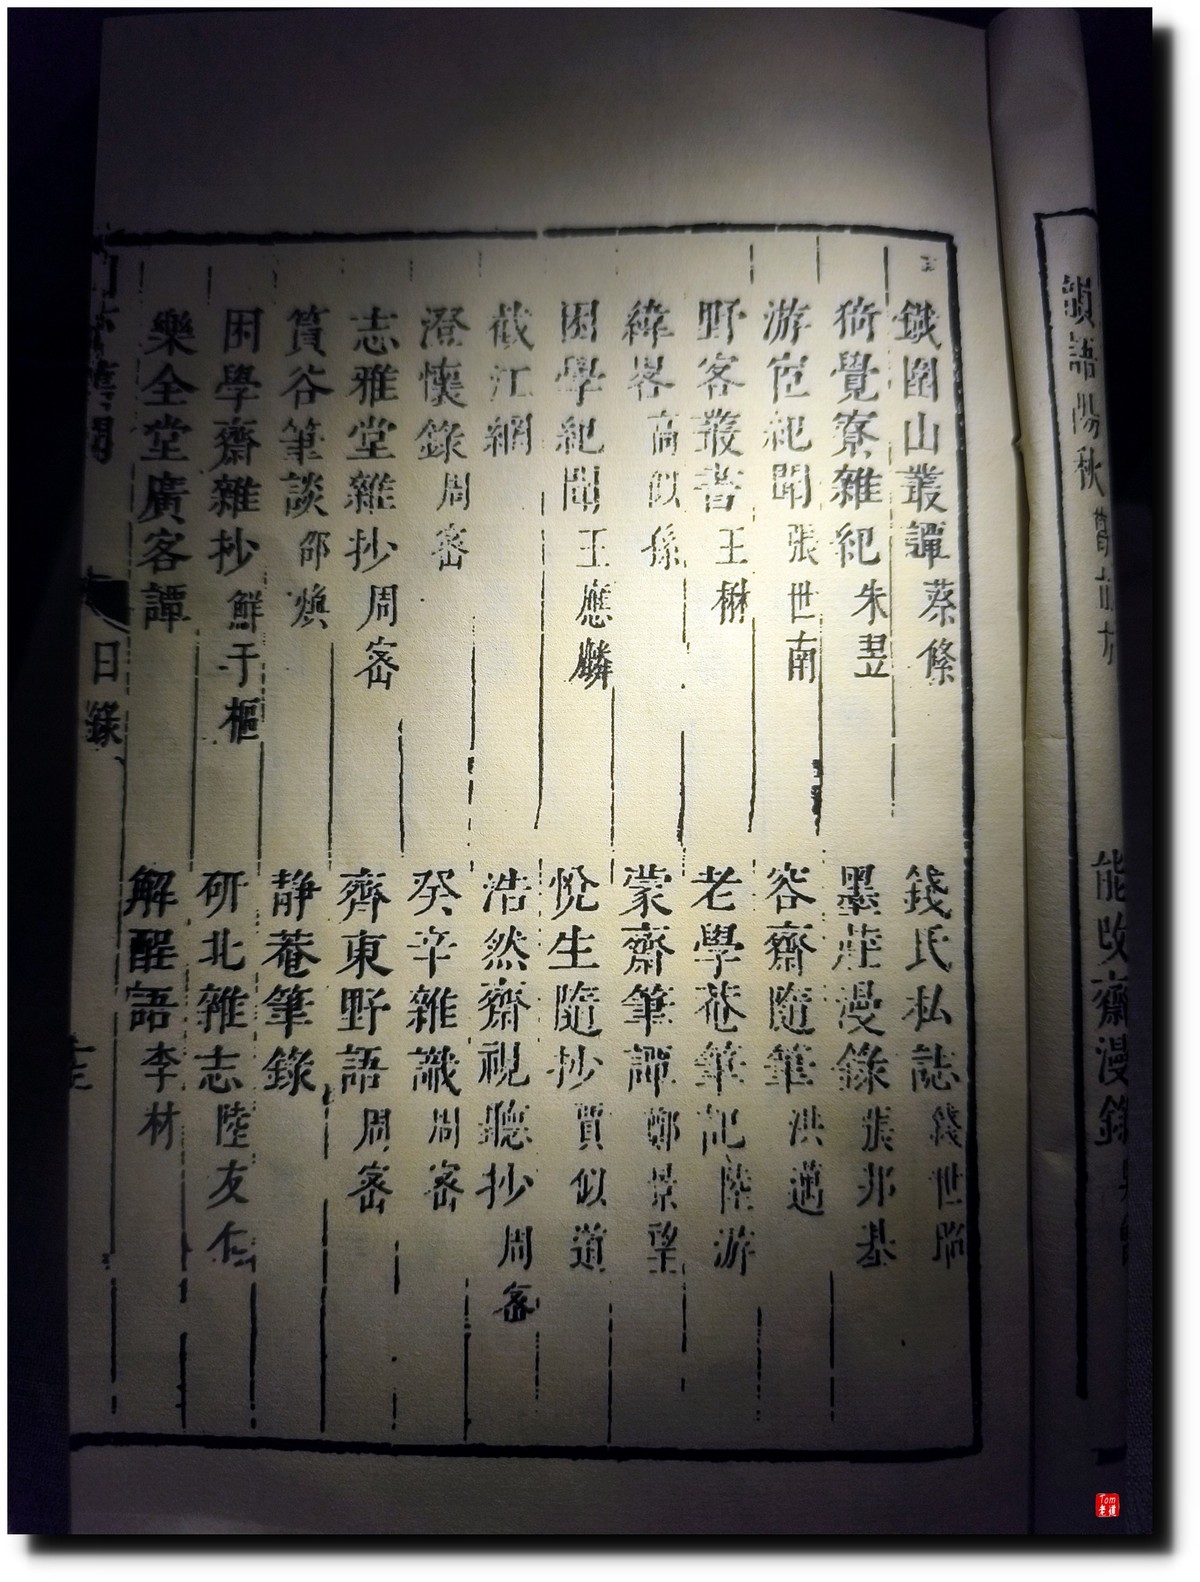 韻語陽秋
能改齋漫錄
鐵圍山叢譚 蔡絛
錢氏私誌 錢世昭
猗覺寮雜紀 朱翌
墨莊漫錄 張邦基
游宦紀聞 張世南
容齋隨筆 洪邁
野客叢書 王楙
老學菴筆記 陸游
緯畧 高似孫
蒙齋筆譚 鄭景望
困學紀聞 王應麟
悅生隨抄 賈似道
截江網
浩然齋視聽抄 周密
澄懷錄 周密
癸辛雜識 周密
志雅堂雜抄 周密
齊東野語 周密
篔谷筆談 邵煥
靜菴筆錄
困學齋雜抄 鮮于樞
研北雜志 陸友仁
樂全堂廣客譚
解酲語 李材
日錄
Tom